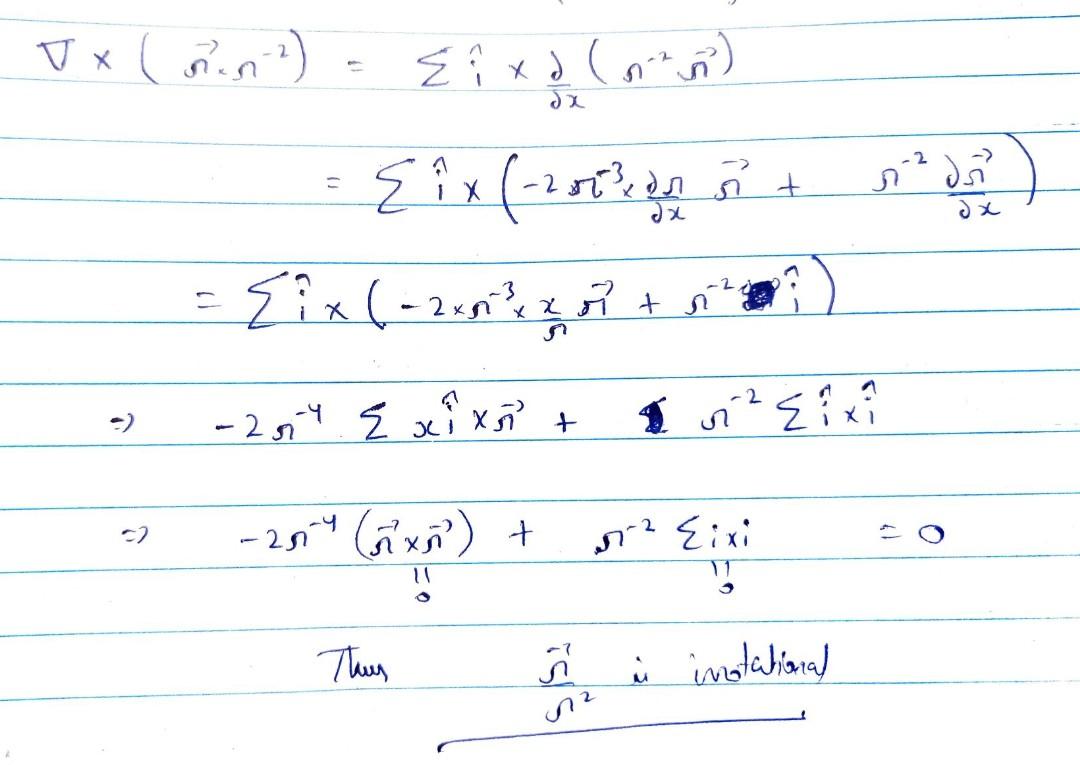 ∇ × ( r⃗ × r⁻² ) = Σ î × ∂/∂x ( r⁻² r⃗ )
= Σ î × ( -2 r⁻³ × ∂r/∂x r⃗ + r⁻² ∂r⃗/∂x )
= Σ î × ( -2 × r⁻³ × x/r r⃗ + r⁻² î )
⇒ -2 r⁻⁴ Σ x î × r⃗ + r⁻² Σ î × î
⇒ -2 r⁻⁴ ( r⃗ × r⃗ ) + r⁻² Σ i × i = 0
|| 0 || 0
Thus r⃗/r² is irrotational